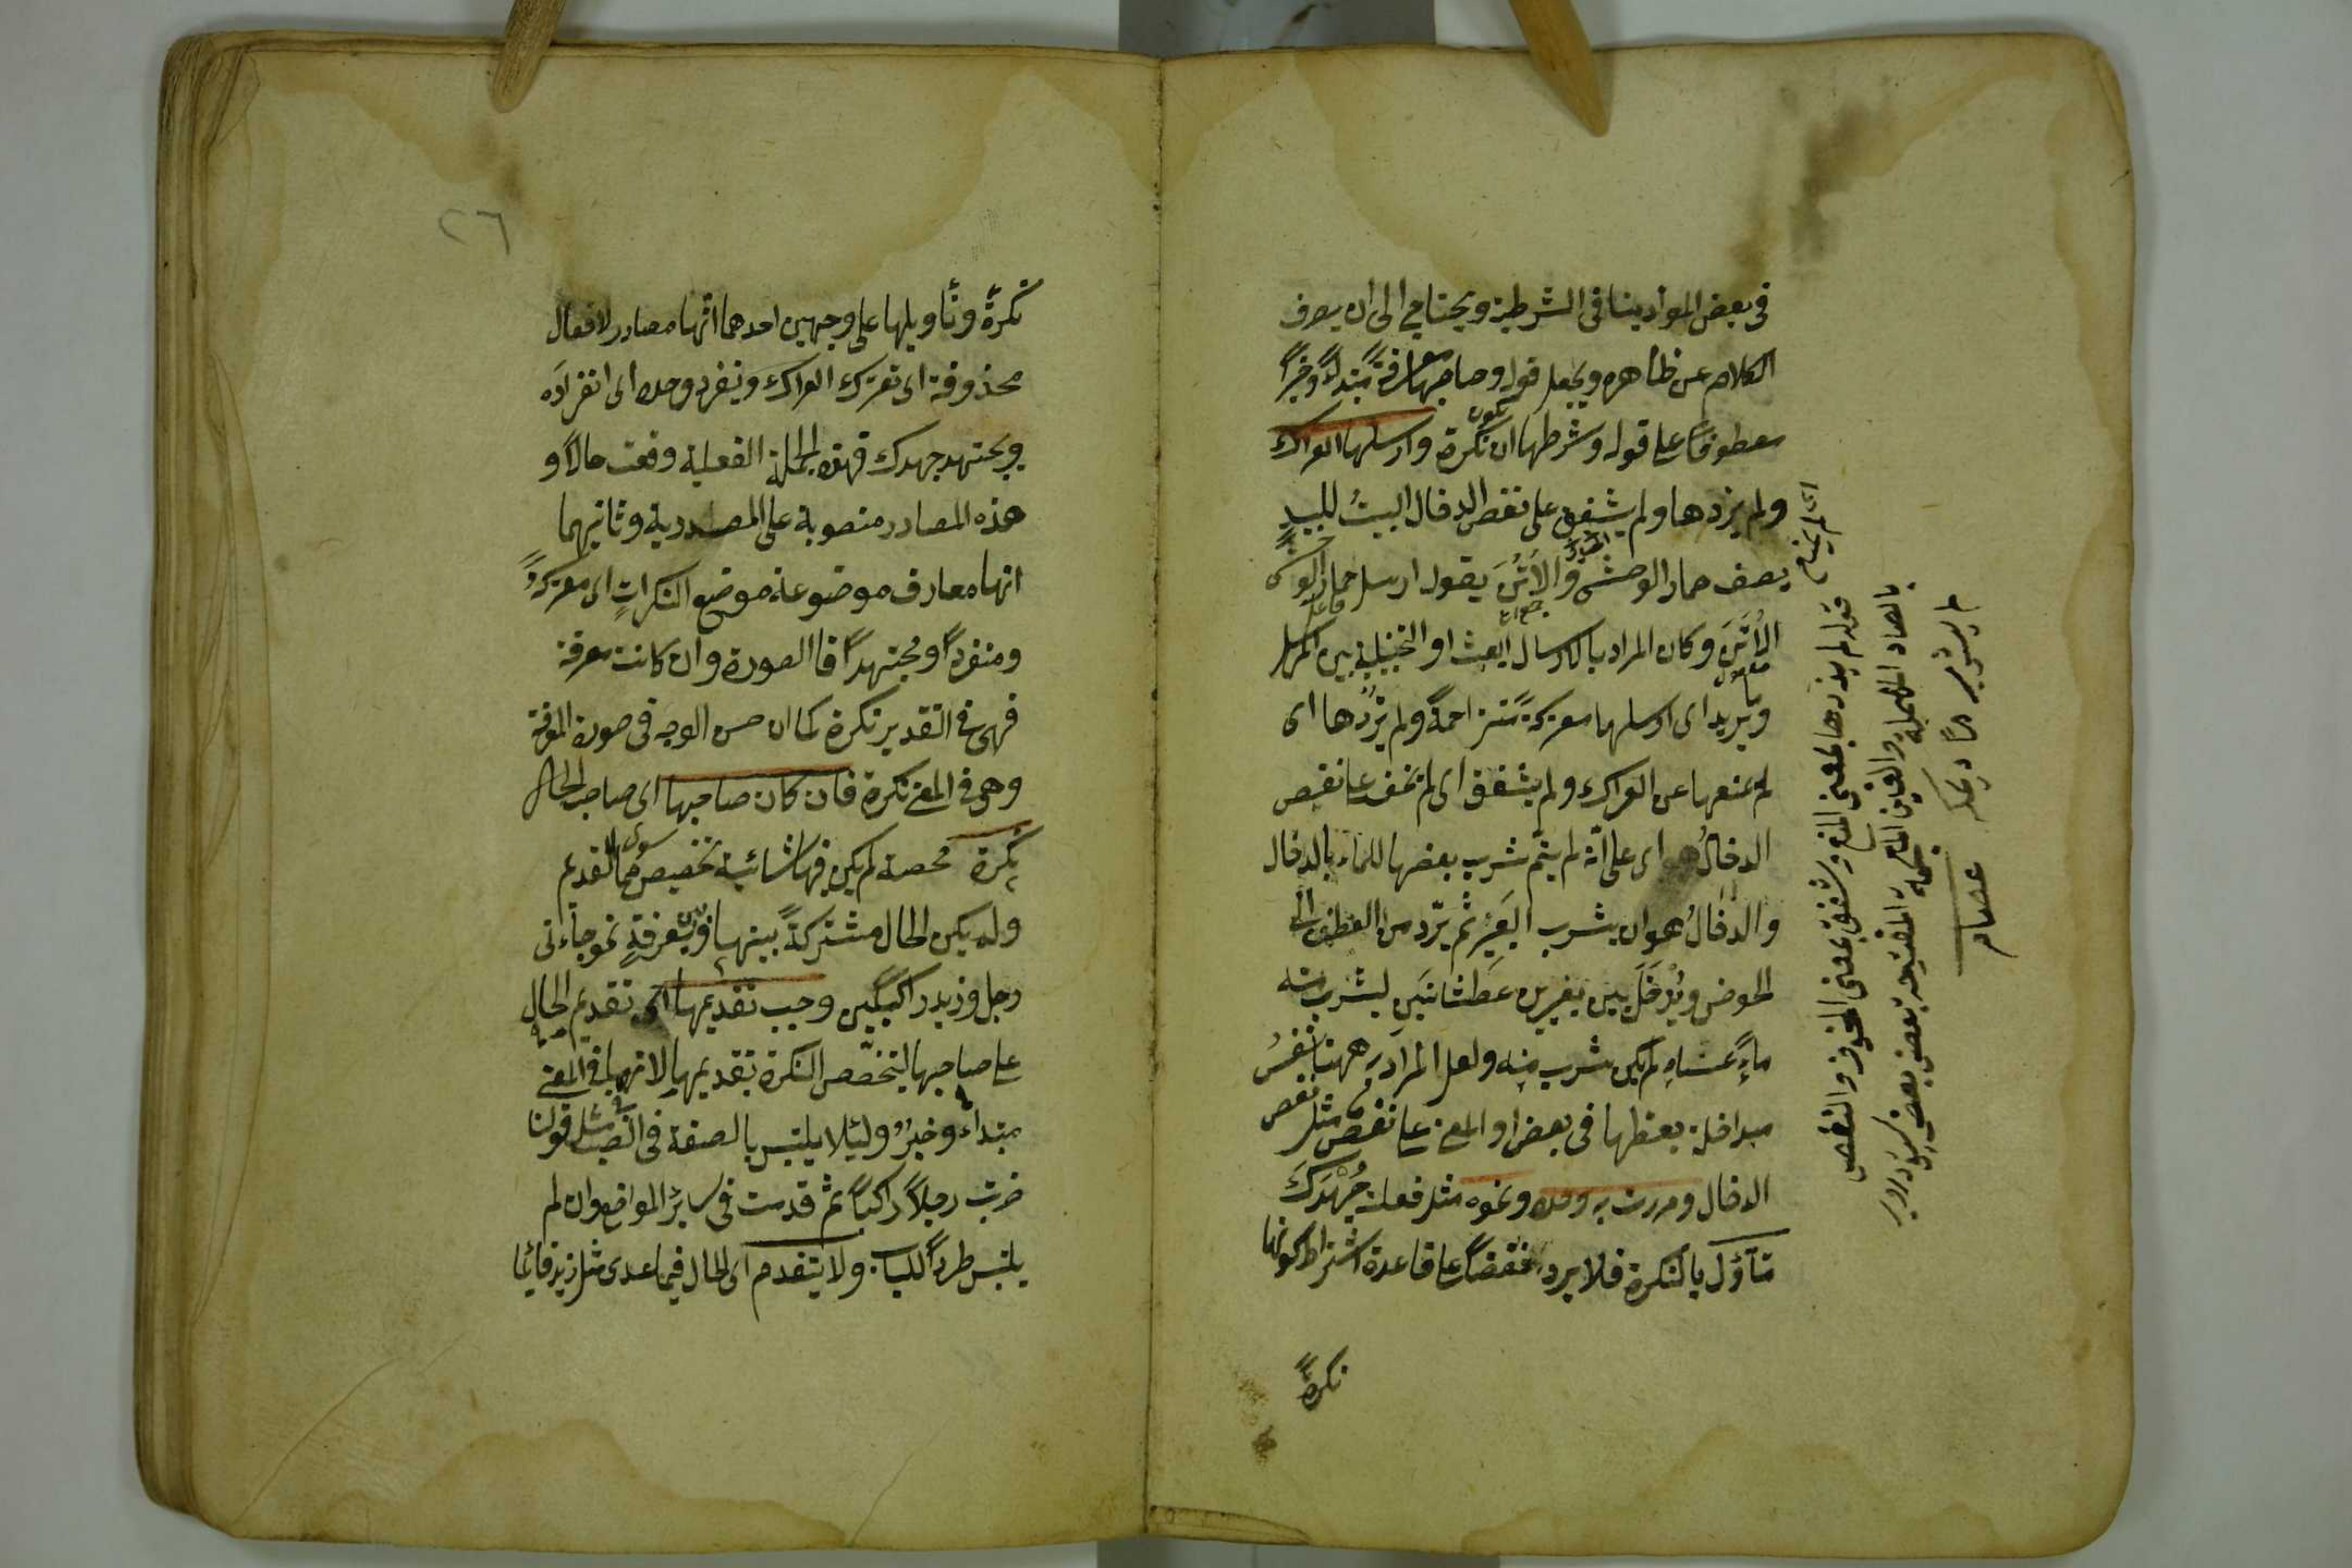 فى بعض المواد ينافى الشرطية ويحتاج الى ان يصرف
الكلام عن ظاهره ويجعل قوله وصاحبها معرفة مبتداءً وخبراً
معطوفاً على قوله وشرطها ان تكون نكرة وارسلها العراك
ولم يزدها ولم يشفق على نغص الدخال البيتُ للبيدٍ
يصف حمار الوحش والاُتُنَ يقول ارسل حمار الوحش
الاُتُنَ وكان المراد بالارسال البعث او التخلية بين المرسل
وما يريد اى ارسلها معتركةً متزاحمةً ولم يزدها اى
لم يمنعها عن العراك ولم يشفق اى لم يخف على نغص
الدخالُ اى على انّه لم يتمّ شرب بعضها للماء بالدخال
والدخالُ هو ان يشرب البعير ثم يردّ من العطن الى
الحوض ويُدْخَلَ بين بعيرين عَطشانَينِ ليشرب منه
ماءً عساهِ لم يكن شرب منه ولعل المراد به ههنا نفسُ
مداخلة بعضها فى بعض او المعنى على نغص مثل نغص
الدخال ومررت به وحده ونحوه مثل فعلته جُهْدَكَ
متأوّل بالنكرة فلا يرد نقضاً على قاعدة اشتراط كونها
نكرةً
اى لم يمنع
قوله لم يذدها بمعنى المنع وشفق بمعنى الخوف والنغص
بالصاد المهملة والغين المعجمة
لم يشرب
عصام
٢٦
نكرةً وتأويلها على وجهين احدهما انّها مصادر لافعال
محذوفة اى تعترك العراك وينفرد وحده اى انفراده
ويجتهد جهدك فهذه الجملة الفعلية وقعت حالاً و
هذه المصادر منصوبة على المصدرية وثانيهما
انها معارف موضوعة موضع النكراتِ اى معتركةً
ومنفرداً ومجتهداً فالصورة وان كانت معرفة
فهى فى التقدير نكرة كما ان حسن الوجه فى صورة المعرفة
وهى فى المعنى نكرة فان كان صاحبها اى صاحب الحال
نكرة محصة لم يكن فيها شائبة تخصيص بما سوى التقديم
ولم يكن الحال مشتركةً بينها وبين معرفةٍ نحو جاءنى
رجل وزيد راكبَينِ وجب تقديمها اى تقديم الحال
على صاحبها ليتخصّص النكرة بتقديمها لانها فى المعنى
مبتداء وخبرٌ ولئلا يلتبس بالصفة فى النصب فى مثل قولنا
ضربت رجلاً راكباً ثم قدمت فى سائر المواضع وان لم
يلتبس طرداً للباب ولا يتقدم اى الحال فيما عدى مثل زيد قائما